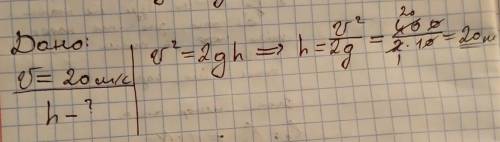 Дано:
v = 20 м/с
h - ?
v² = 2gh ⟹ h = v²/2g = 400/2·10 = 20 м